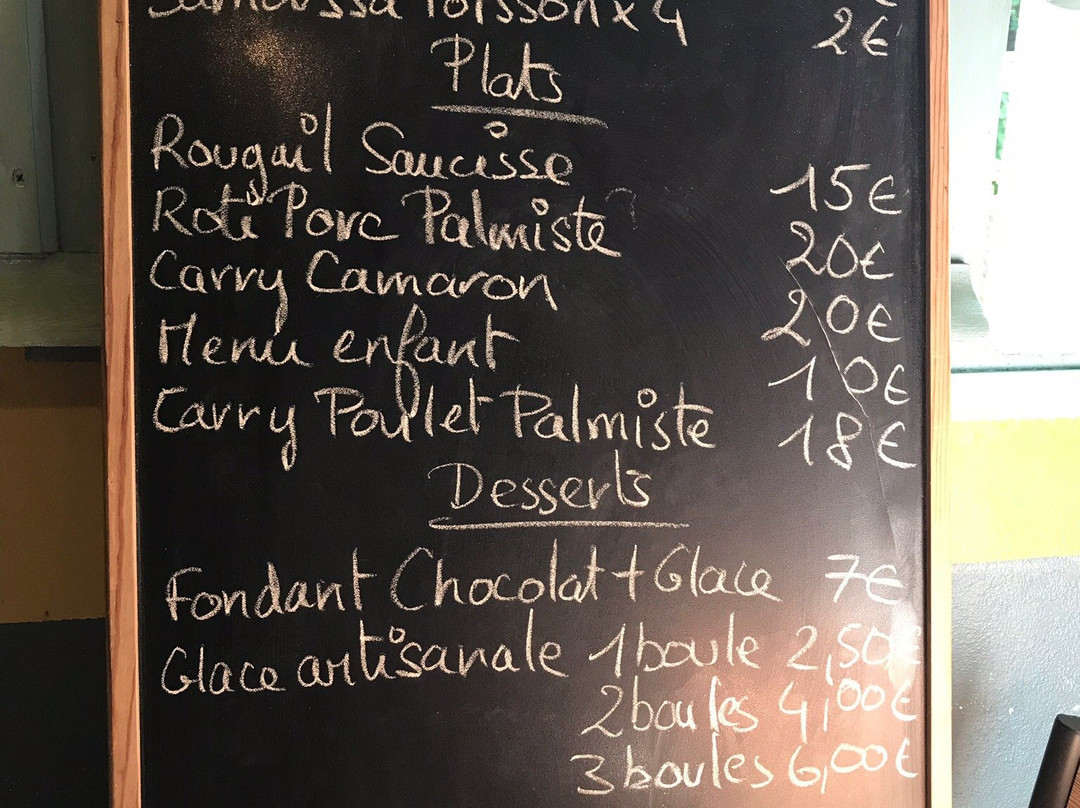 Samoussa Poisson x 4 2€
Plats
Rougail Saucisse 15€
Roti Porc Palmiste 20€
Carry Camaron 20€
Menu enfant 10€
Carry Poulet Palmiste 18€
Desserts
Fondant Chocolat + Glace 7€
Glace artisanale 1 boule 2,50€
2 boules 4,00€
3 boules 6,00€